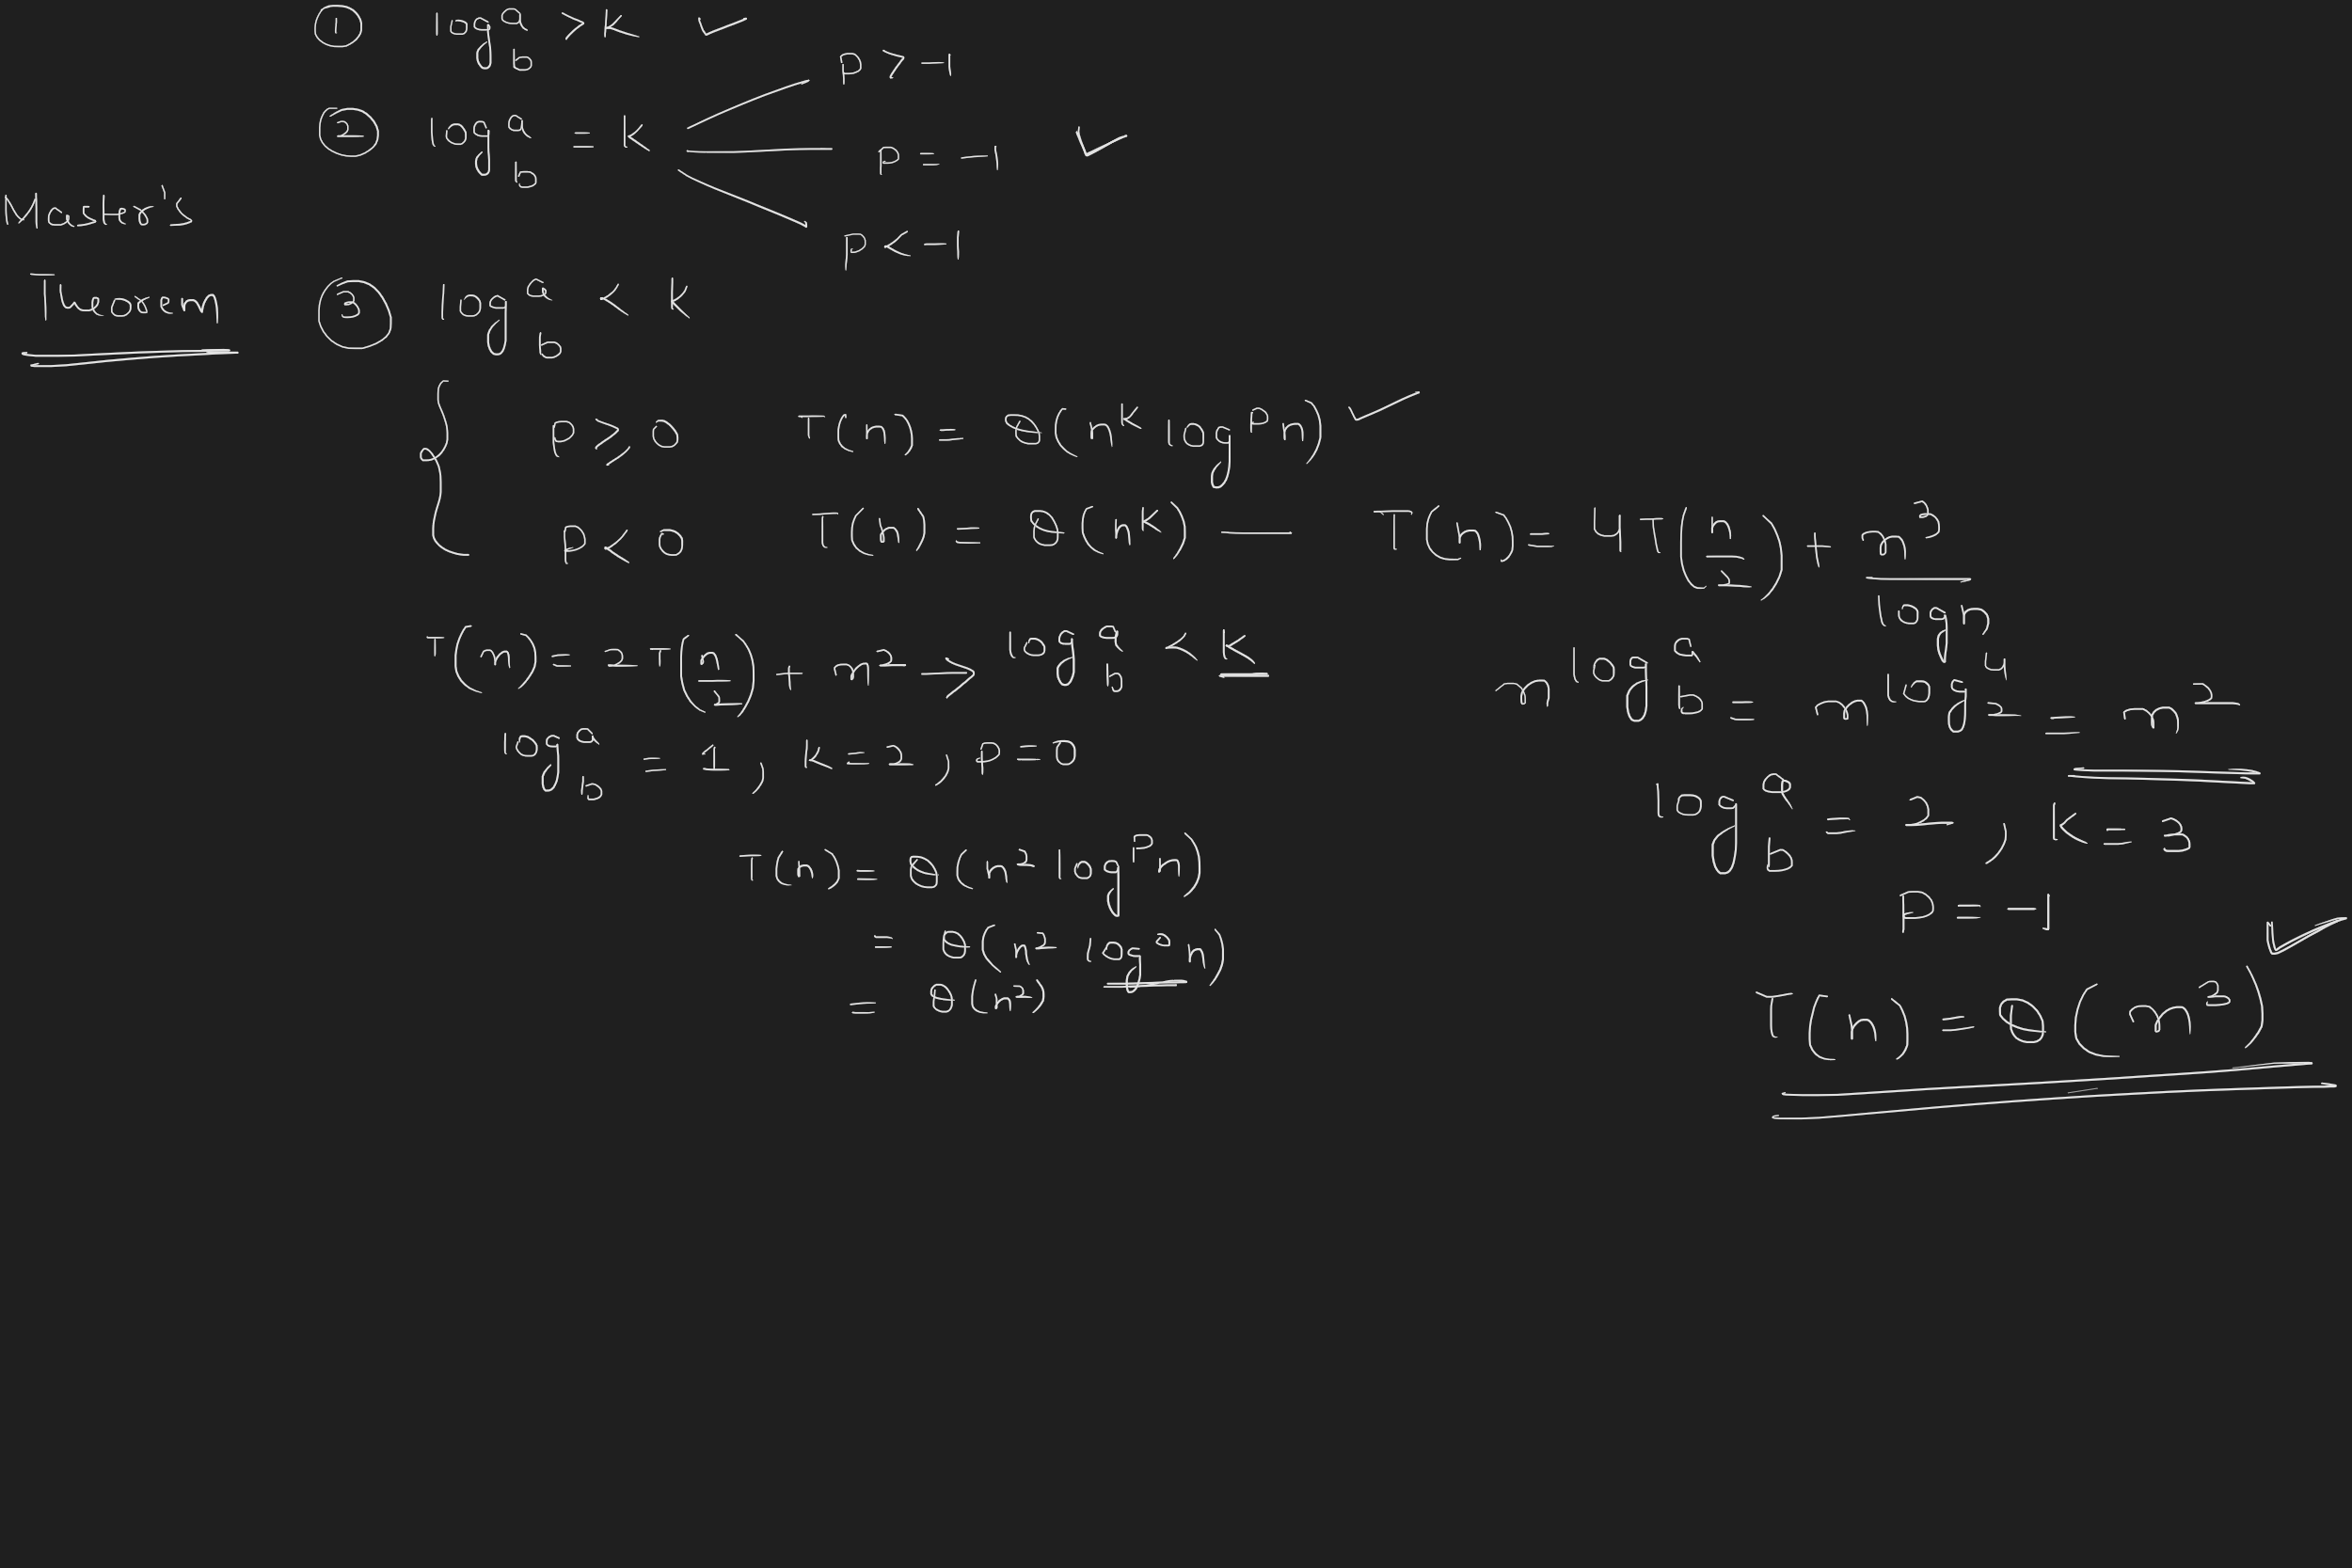 ① log_b^a > K ✓
② log_b^a = K
P > -1
P = -1 ✓
P < -1
Master's
Theorem
③ log_b^a < K
P ≥ 0 T(n) = θ(n^K log^P n) ✓
P < 0 T(n) = θ(n^K) — T(n) = 4T(n/2) + n^3/log n
T(n) = 2T(n/2) + n^2 → log_b^a < K
log_b^a = 1, K = 2, P = 0
T(n) = θ(n^2 log^P n)
= θ(n^2 log^0 n)
= θ(n^2)
n^log_b^a = n^log_2^4 = n^2
log_b^a = 2, K = 3
P = -1
T(n) = θ(n^3) ✓